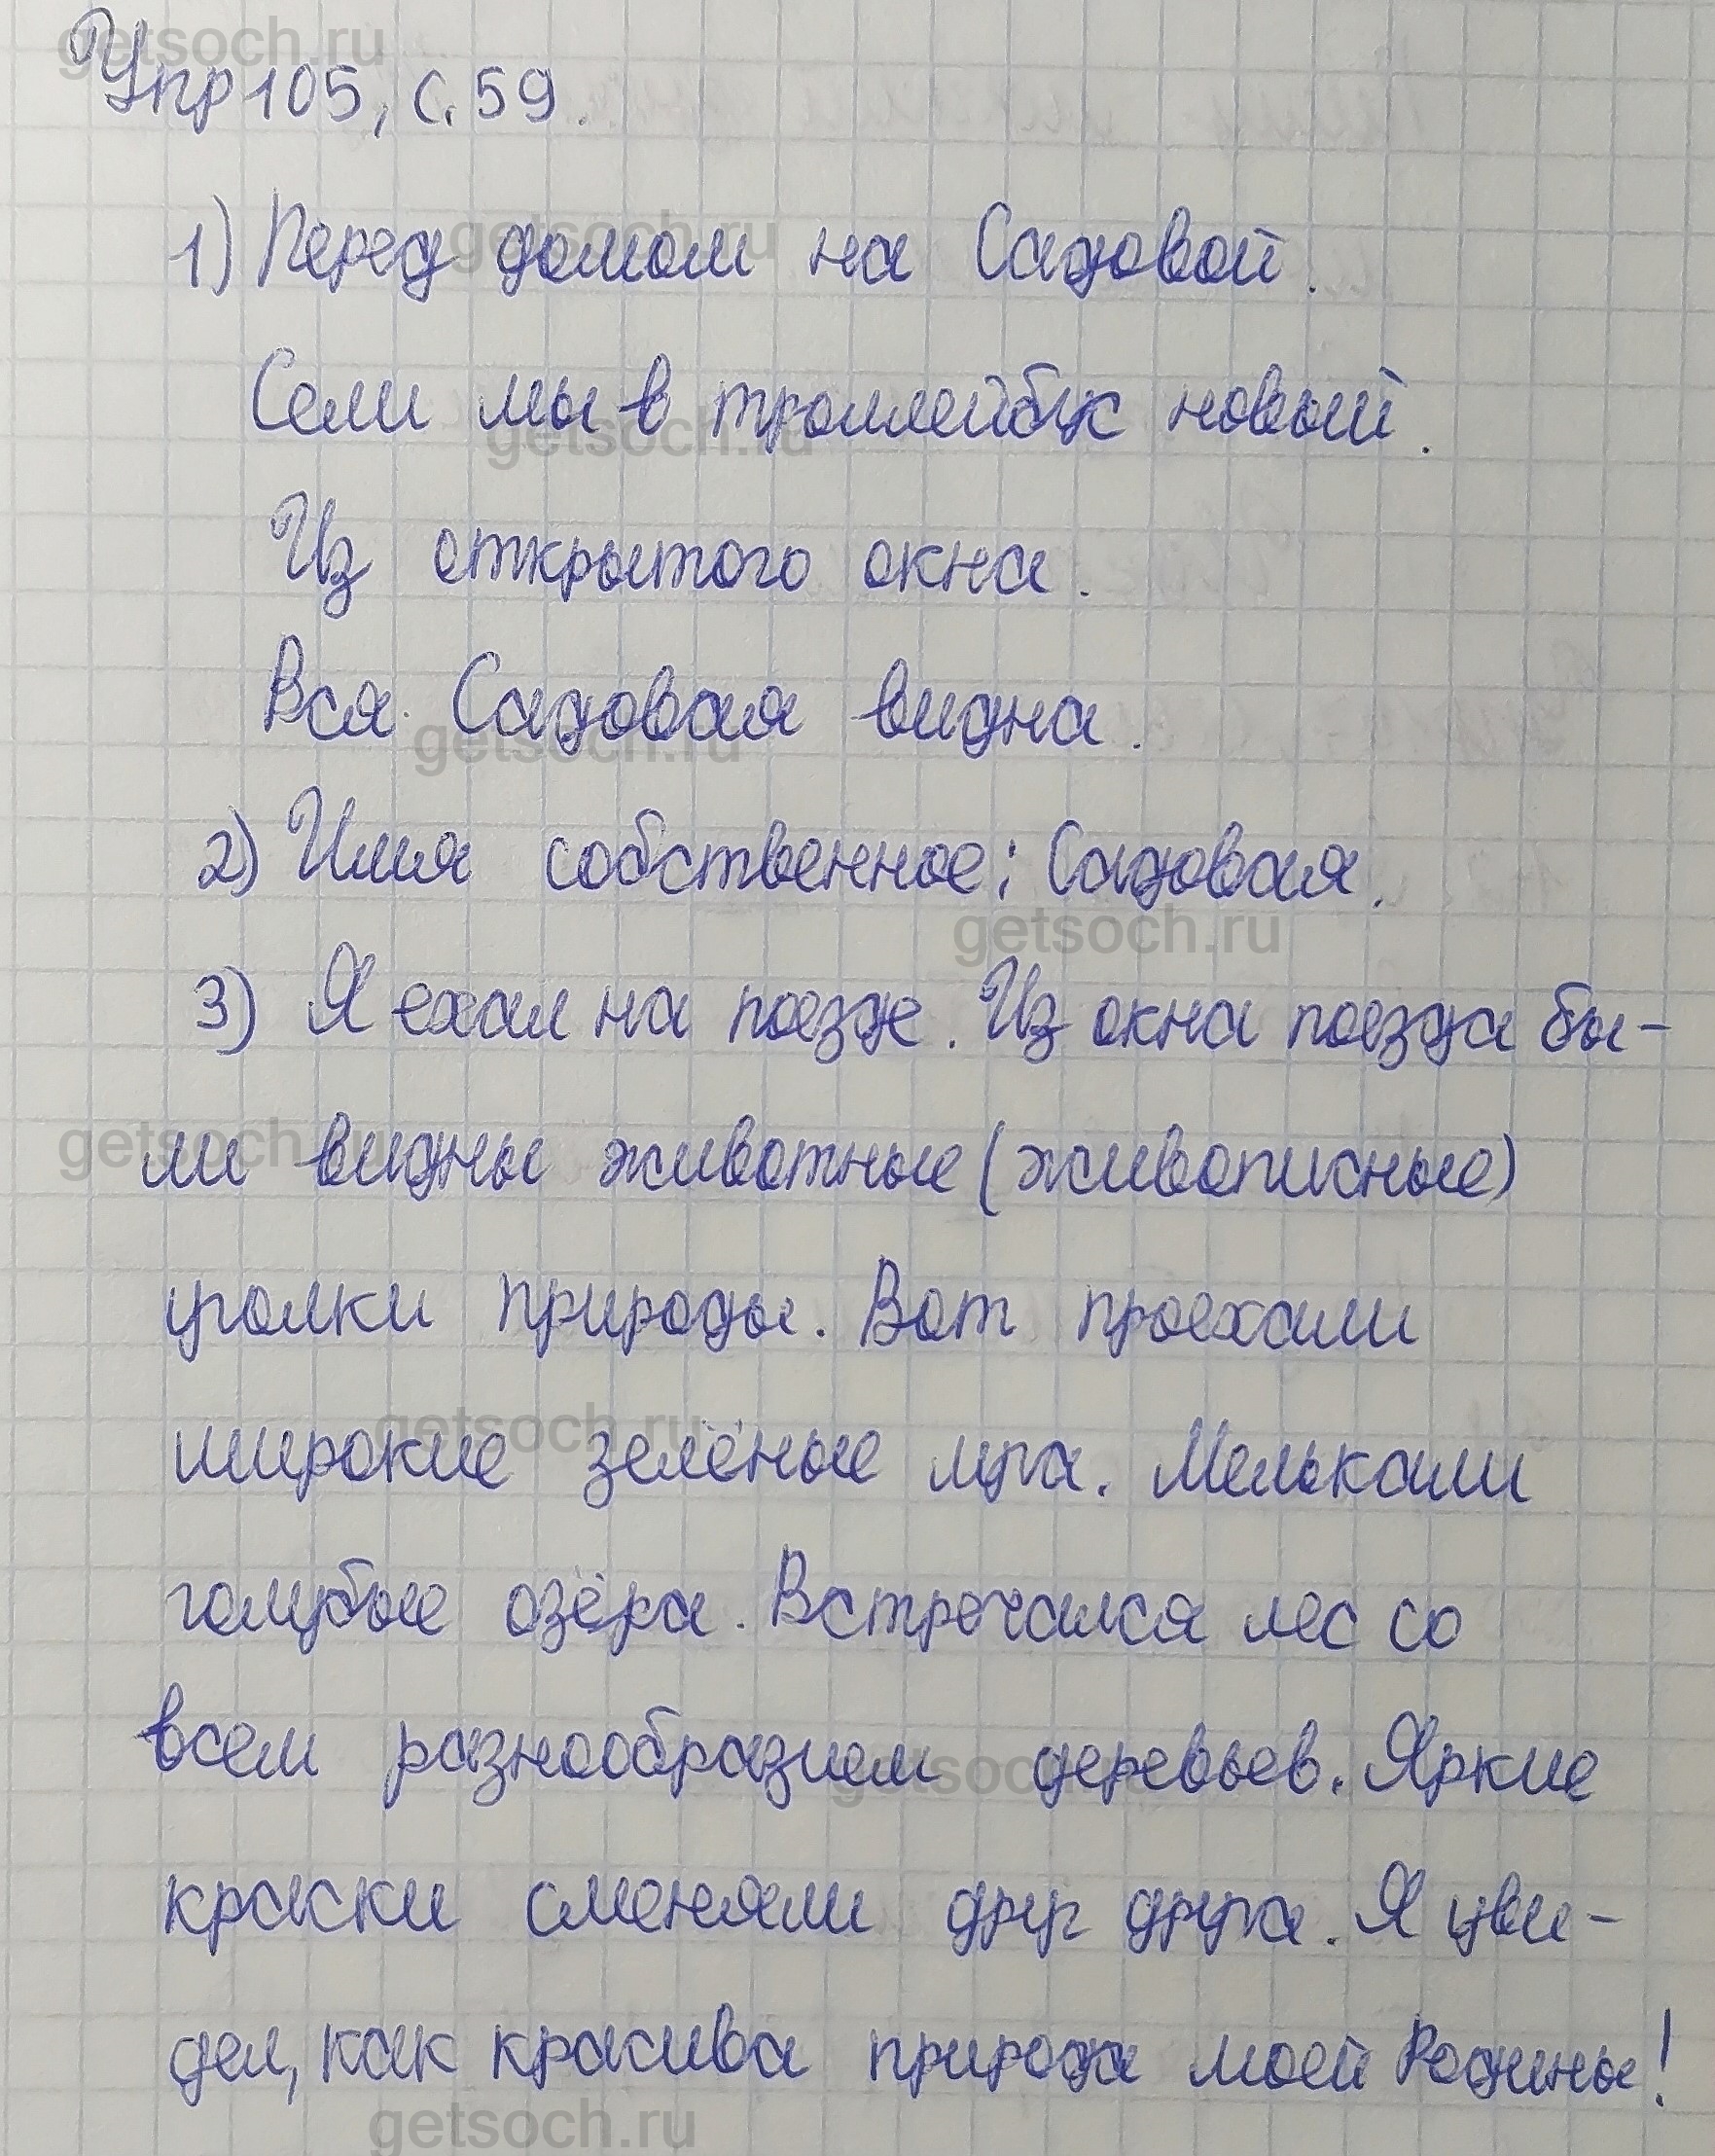 Упр 105, с. 59.
1) Перед домом на Садовой.
Сели мы в троллейбус новый.
Из открытого окна.
Вся Садовая видна.
2) Имя собственное: Садовая.
3) Я ехал на поезде. Из окна поезда бы-
ли видны животные (живописные)
уголки природы. Вот проехали
широкие зелёные луга. Мелькали
голубые озёра. Встречался лес со
всем разнообразием деревьев. Яркие
краски сменяли друг друга. Я уви-
дел, как красива природа моей Родины!
getsoch.ru
getsoch.ru
getsoch.ru
getsoch.ru
getsoch.ru
getsoch.ru
getsoch.ru
getsoch.ru
getsoch.ru